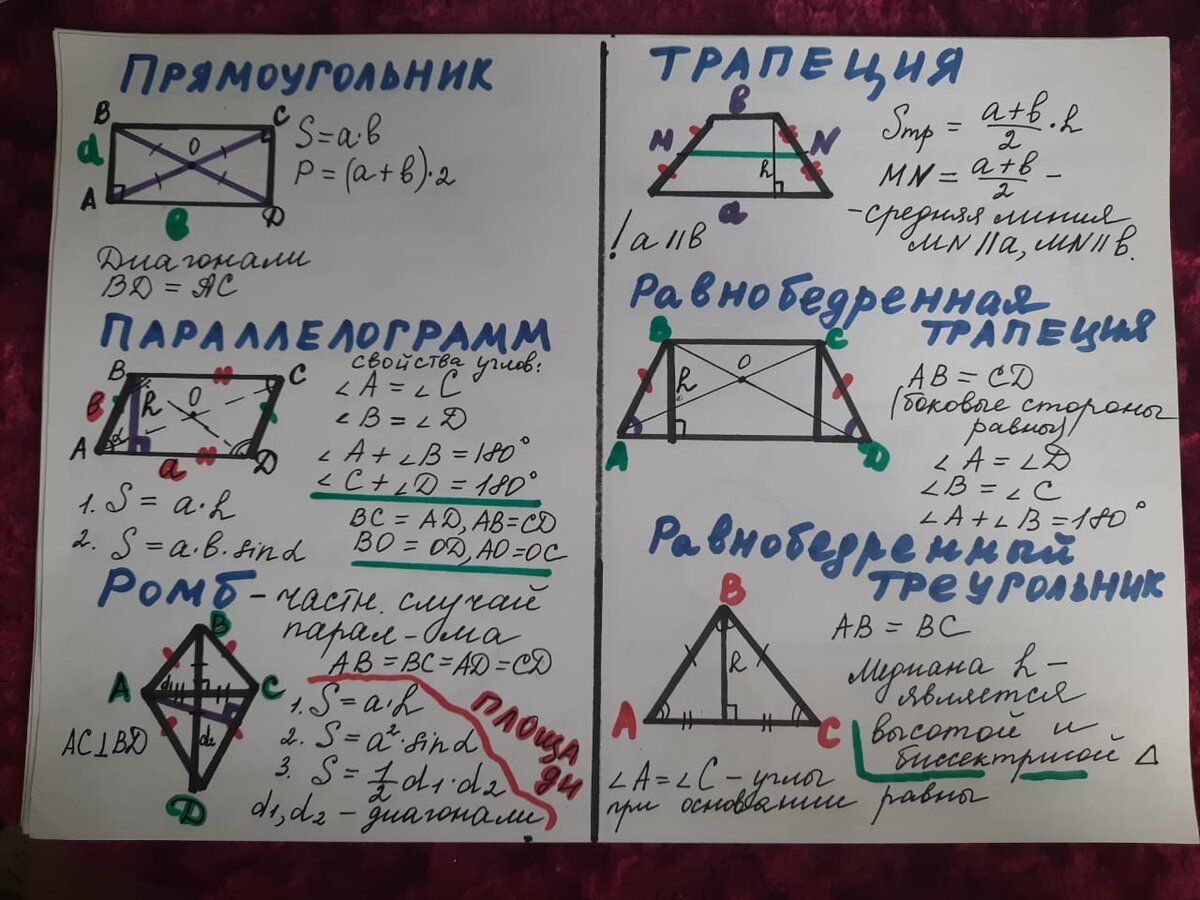 ПРЯМОУГОЛЬНИК
B
C
d
O
A
D
в
S=a·в
P=(a+в)·2
Диагонали
BD = AC
ПАРАЛЛЕЛОГРАММ
B
C
в
h
O
A
α
D
a
свойства углов:
∠A = ∠C
∠B = ∠D
∠A + ∠B = 180°
∠C + ∠D = 180°
1. S = a·h
2. S = a·в·sinα
BC = AD, AB=CD
BO = OD, AO=OC
РОМБ - частн. случай
парал-ма
AB = BC = AD = CD
B
A
C
d1
d2
D
AC⊥BD
1. S = a·h
2. S = a²·sinα
3. S = 1/2 d1·d2
d1, d2 - диагонали
ПЛОЩА
ДИ
ТРАПЕЦИЯ
в
M
N
h
a
Sтр = (a+в)/2 · h
MN = (a+в)/2 -
-средняя линия
MN||a, MN||в.
! a||в
Равнобедренная
ТРАПЕЦИЯ
B
C
O
h
A
D
AB = CD
(боковые стороны
равны)
∠A = ∠D
∠B = ∠C
∠A+∠B=180°
Равнобедренный
ТРЕУГОЛЬНИК
B
h
A
C
AB = BC
Медиана h -
является
высотой и
биссектрисой Δ
∠A=∠C - углы
при основании равны